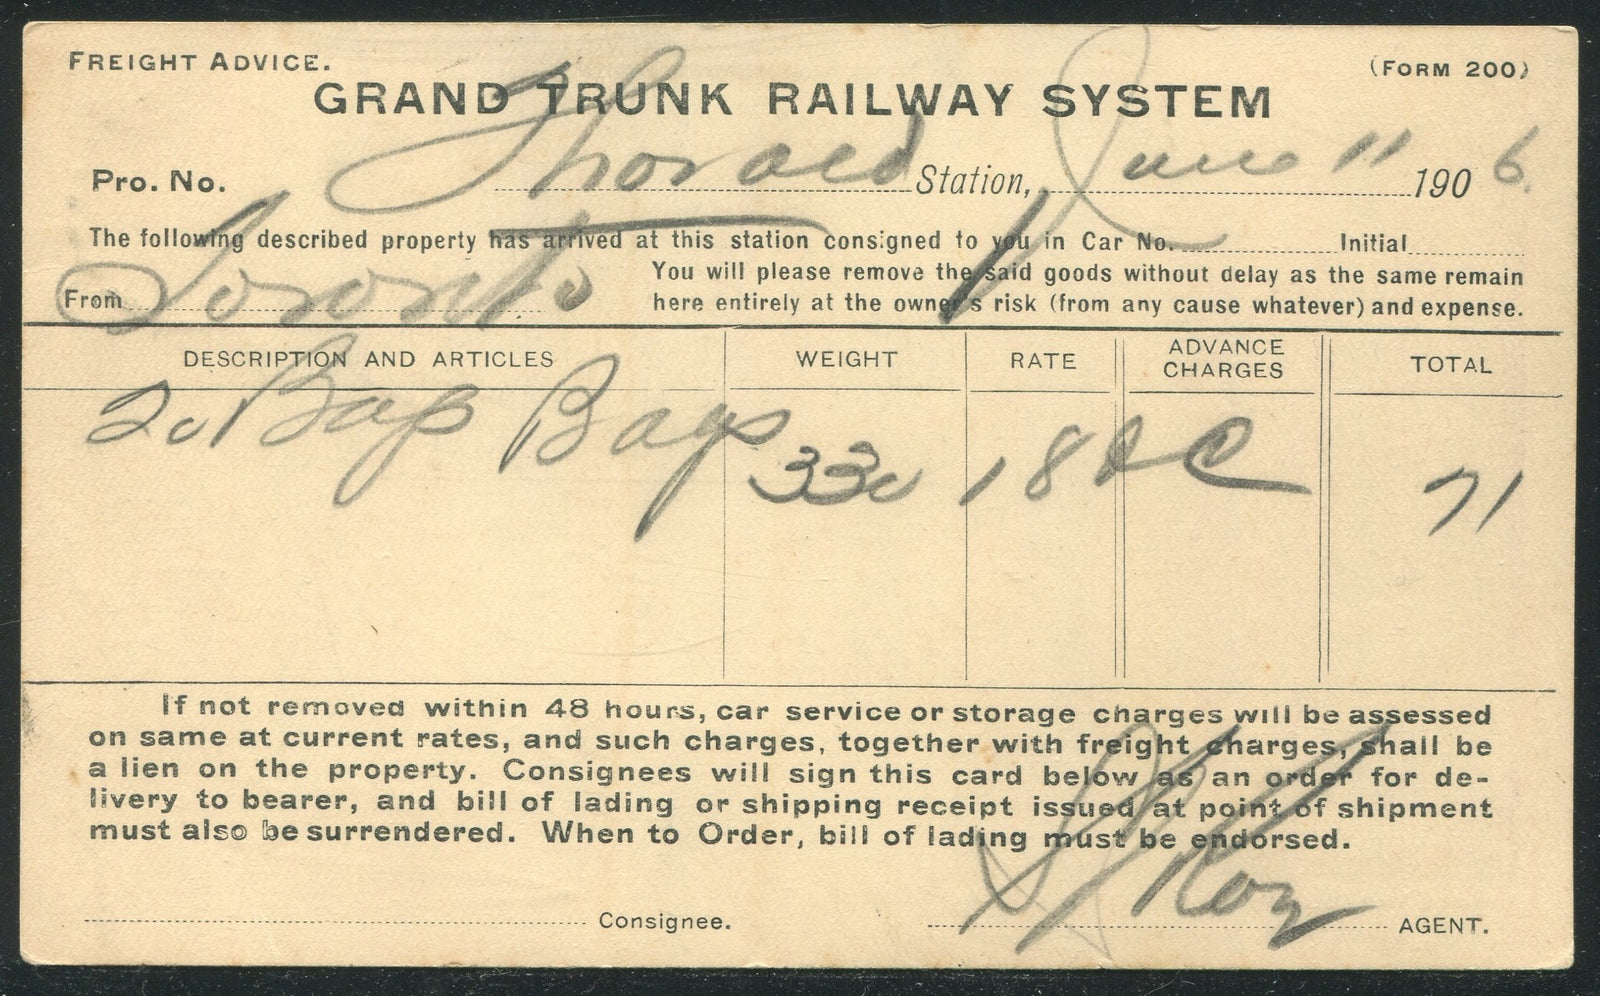 FREIGHT ADVICE.
(FORM 200)
GRAND TRUNK RAILWAY SYSTEM
Pro. No. Thorold Station, June 11 1906.
The following described property has arrived at this station consigned to you in Car No. Initial
From Toronto You will please remove the said goods without delay as the same remain
here entirely at the owner's risk (from any cause whatever) and expense.
DESCRIPTION AND ARTICLES WEIGHT RATE ADVANCE CHARGES TOTAL
20 Bags 330 18 71
If not removed within 48 hours, car service or storage charges will be assessed
on same at current rates, and such charges, together with freight charges, shall be
a lien on the property. Consignees will sign this card below as an order for de-
livery to bearer, and bill of lading or shipping receipt issued at point of shipment
must also be surrendered. When to Order, bill of lading must be endorsed.
Consignee. AGENT.